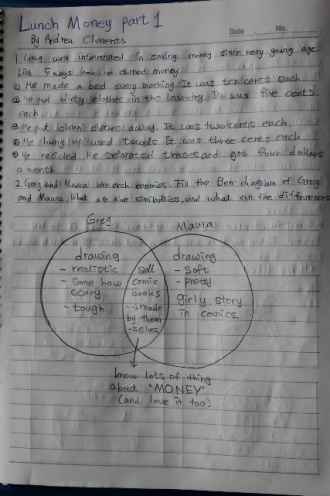 Lunch Money part 1
By Andrea Clements
Date No.
1. Greg were interested in saving money since very young age
List 5 ways how he earned money
① He made a bed every morning It was ten cents each
② He put dirty clothes in the laundry It was five cents
each
③ He put clean clothes away. It was two cents each
④ He hung up used towels It was three cents each
⑤ He recicled He separated trases and got four dollars
a month
2. Greg and Maura were arch enemies. Fill the Ben diagram of Greg
and Maura. What are the similarities, and what are the differences
Greg Maura
drawing
- realistic
- some how
scary
- tough
sell
comic
books
made
by them
- selves
drawing
- soft
- pretty
girly story
in comics.
know lots of thing
about "MONEY"
(and love it too)